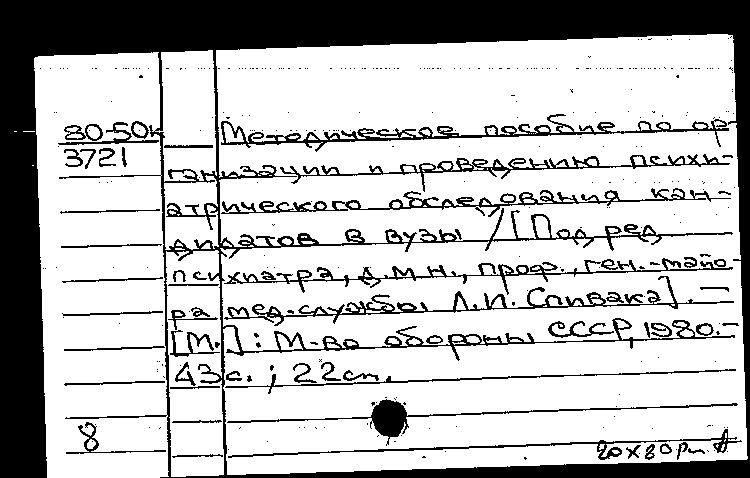 80-50к Методическое пособие по ор-
3721
ганизации и проведению психи-
атрического обследования кан-
дидатов в вузы / [Под ред.
психиатра, д.м.н., проф., ген.-майо-
ра мед.службы Л.И. Спивака]. —
[М.] : М-во обороны СССР, 1980.-
43с. ; 22см.
8